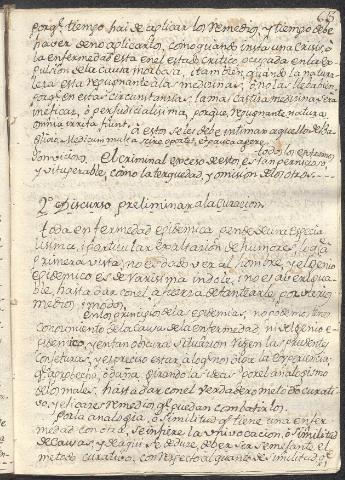 65
porq̃ tiempo hai de aplicar los remedios, y tiempo debe
haver de no aplicarlos, como quando insta una Crisis, ò
la enfermedad està en el estado critico ocupada en la ex-
pulsion de la causa morbosa, i tambien quando la natura-
leza està repugnante à las medicinas, ò no las lleva bien,
porq̃ en estas circunstancias, la mas castiza medicina serà
ineficaz, ò perjudicialisima, porque, repugnante natura
omnia irrita fiunt.
à estos se les debe intimar aquello de Ba-
glivio: Medicum multa scire oportet, et pauca agere.
todos los extremos
son viciosos, el criminal exceso de estos, es tan pernicioso
y vituperable, como la terquedad, y omision de los otros.
2.º Discurso preliminar a la Curacion.
toda enfermedad epidemica pende de una especia-
lisima, i particular exaltacion de humores, la q̃ à
primera vista, no es dado ver al hombre, y el genio
epidemico es de rarisima indole, i no es averigua-
ble, hasta dar con el, à fuerza de tantearle, por varios
medios, i modos.
En los principios de las epidemias, no podemos tener
conocimiento de la Causa de la enfermedad, ni del genio e-
pidemico, y en tan obscura situacion rigen las prudentes
Conjeturas, y es preciso estar à lo q̃ nos dicta la experiencia;
q̃ aprobechò, ò daña, girando las ideas por el analogismo
de los males, hasta dar con el verdadero metodo curati-
vo, y eficazes remedios q̃ puedan combatirlos.
Por la analogia, ò similitud q̃ tiene una enfer-
medad con otra, se infiere la univocacion, ò similitud
de Causas, y de aqui se deduce, deber ser semejante el
metodo curativo, con respecto al quanto de similitud q̃